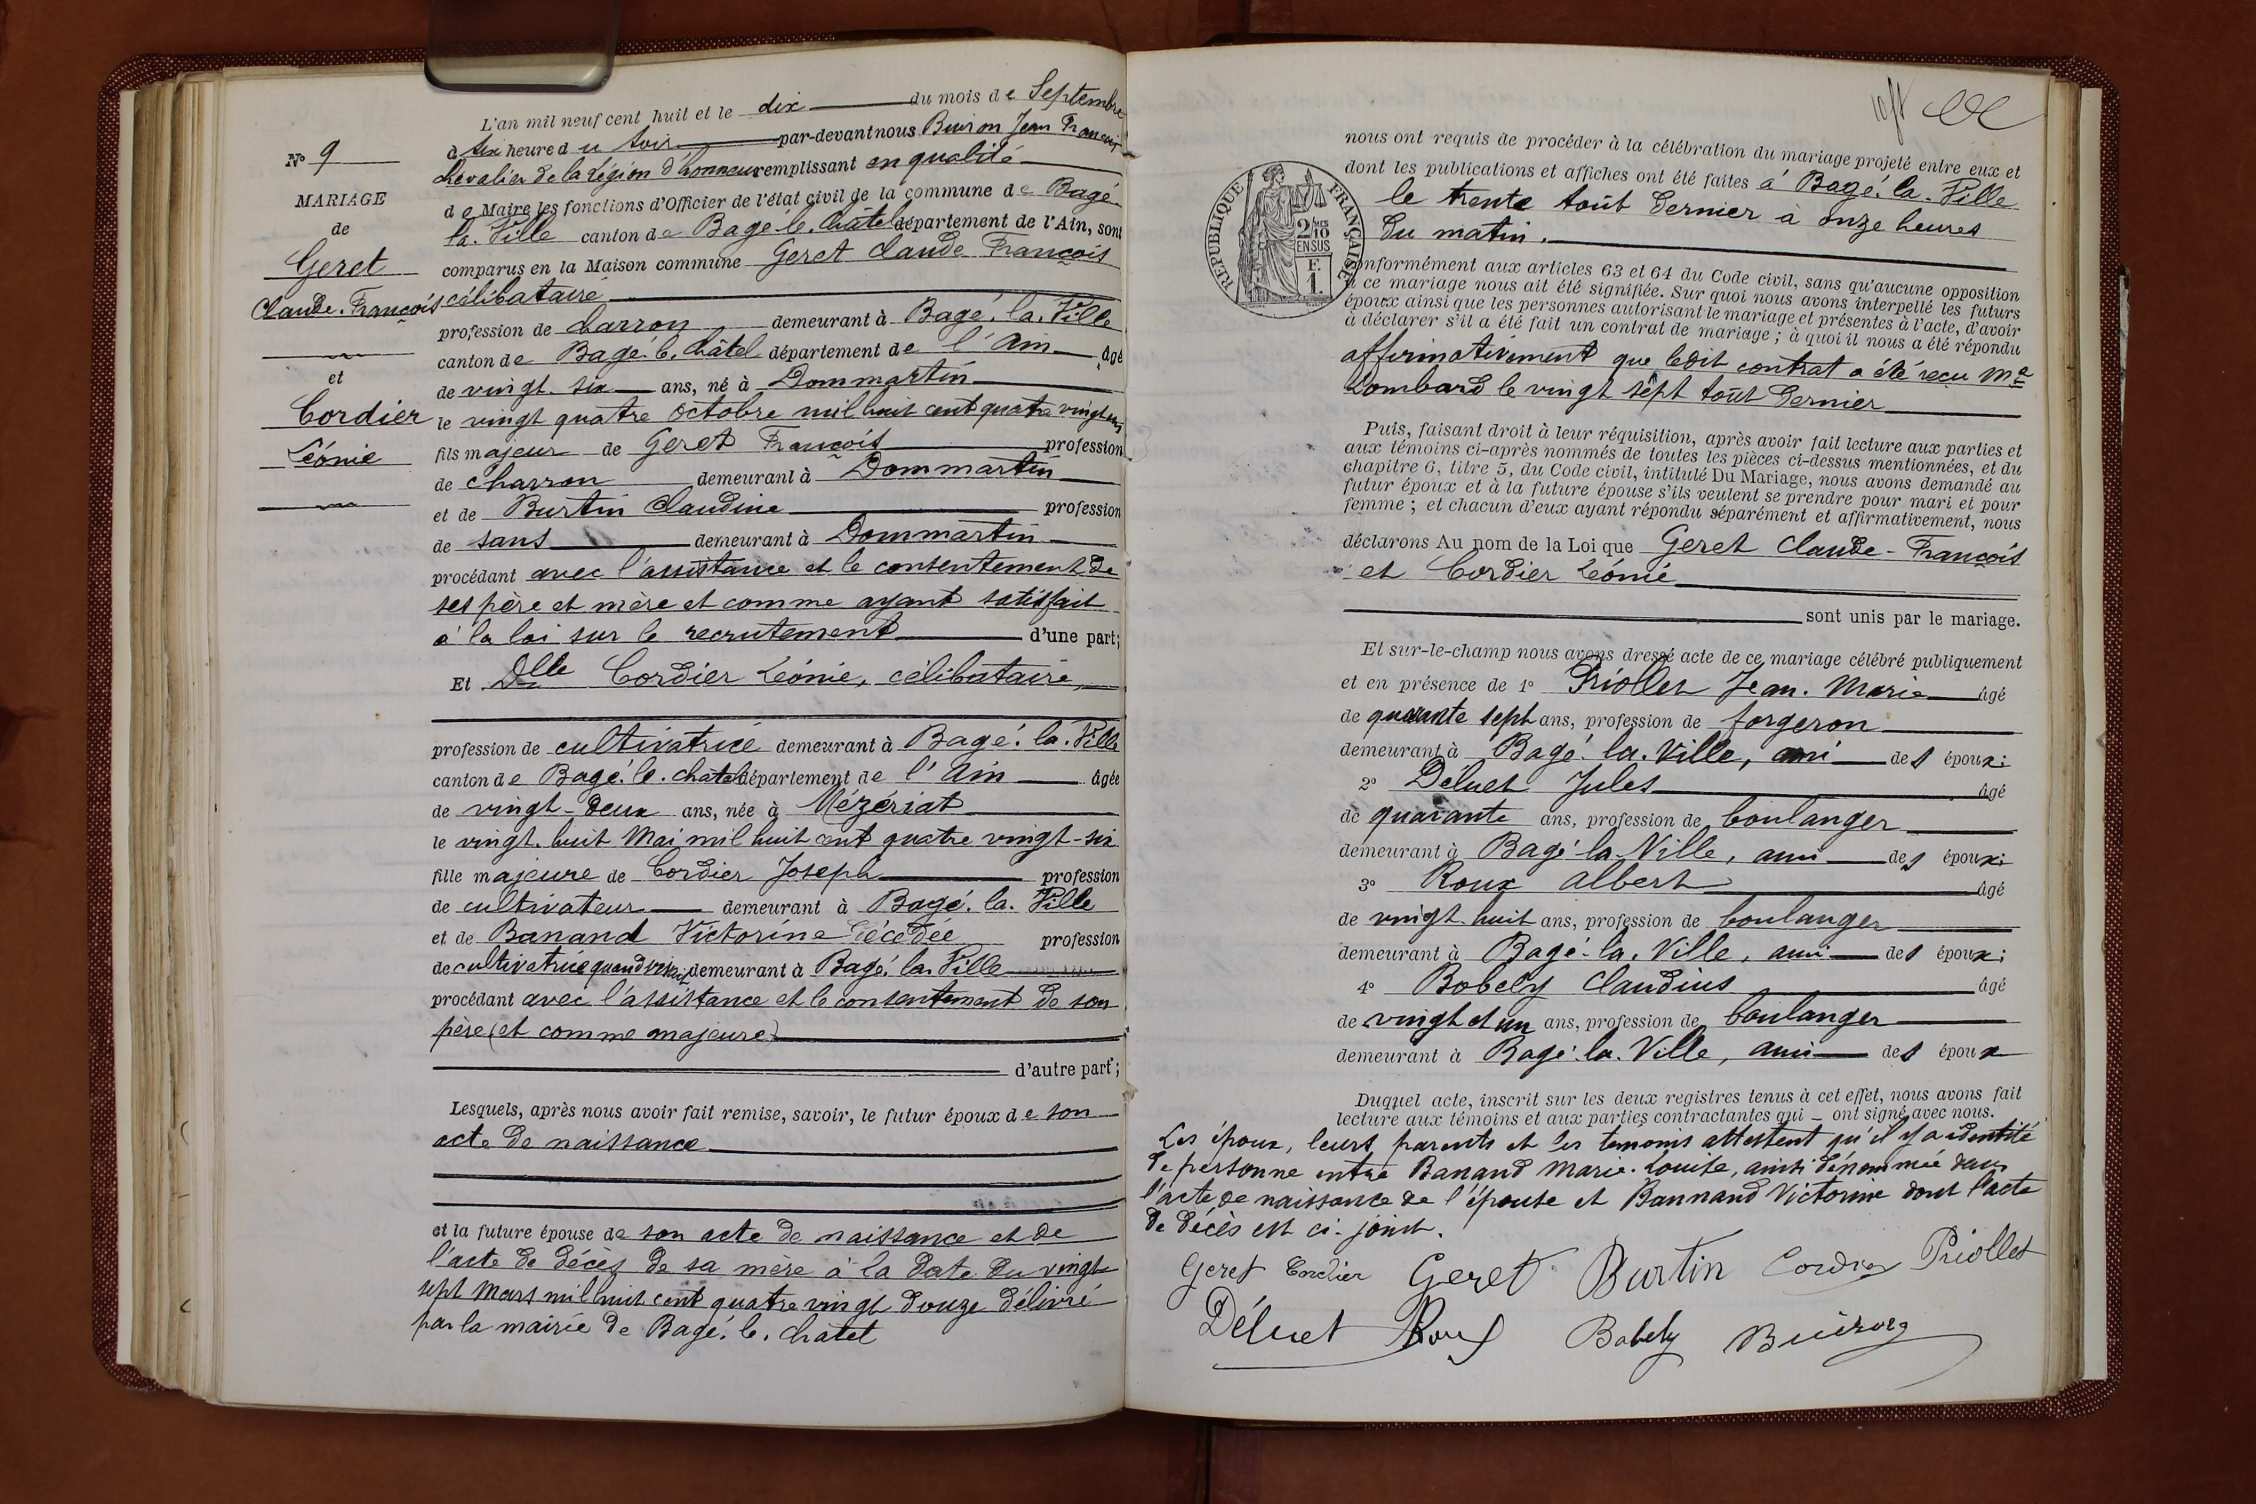 L'an mil neuf cent huit et le dix du mois de Septembre
à six heure du soir par-devant nous Buiron Jean François
chevalier de la Légion d'honneur remplissant en qualité
de Maire les fonctions d'Officier de l'état civil de la commune de Bagé
la. Ville canton de Bagé le. Châtel département de l'Ain, sont
comparus en la Maison commune Geret Claude François
célibataire
profession de charron demeurant à Bagé. la. Ville
canton de Bagé. le. Châtel département de l'Ain âgé
de vingt-six ans, né à Dommartin
le vingt quatre Octobre mil huit cent quatre vingt un
fils majeur de Geret François profession
de charron demeurant à Dommartin
et de Burtin Claudine profession
de sans demeurant à Dommartin
procédant avec l'assistance et le consentement de
ses père et mère et comme ayant satisfait
à la loi sur le recrutement d'une part;
Et Dlle Cordier Léonie, célibataire,
profession de cultivatrice demeurant à Bagé. la. Ville
canton de Bagé. le. chatel département de l'Ain âgée
de vingt-deux ans, née à Mézériat
le vingt. huit Mai mil huit cent quatre vingt-six
fille majeure de Cordier Joseph profession
de cultivateur demeurant à Bagé. la. Ville
et de Banand Victorine décédée profession
de cultivatrice quand vivait demeurant à Bagé. la. Ville
procédant avec l'assistance et le consentement de son
père (et comme majeure)
d'autre part;
Lesquels, après nous avoir fait remise, savoir, le futur époux de son
acte de naissance
et la future épouse de son acte de naissance et de
l'acte de décès de sa mère à la date du vingt
sept Mars mil huit cent quatre vingt douze délivré
par la mairie de Bagé. le. chatel
N° 9
MARIAGE
de
Geret
Claude. François
et
Cordier
Léonie
nous ont requis de procéder à la célébration du mariage projeté entre eux et
dont les publications et affiches ont été faites à Bagé. la. Ville
le trente août dernier à onze heures
du matin.
RÉPUBLIQUE FRANÇAISE
2/10
EN SUS
F.
1.
Conformément aux articles 63 et 64 du Code civil, sans qu'aucune opposition
à ce mariage nous ait été signifiée. Sur quoi nous avons interpellé les futurs
époux ainsi que les personnes autorisant le mariage et présentes à l'acte, d'avoir
à déclarer s'il a été fait un contrat de mariage; à quoi il nous a été répondu
affirmativement que ledit contrat a été reçu Me
Lombard le vingt sept août dernier
Puis, faisant droit à leur réquisition, après avoir fait lecture aux parties et
aux témoins ci-après nommés de toutes les pièces ci-dessus mentionnées, et du
chapitre 6, titre 5, du Code civil, intitulé Du Mariage, nous avons demandé au
futur époux et à la future épouse s'ils veulent se prendre pour mari et pour
femme; et chacun d'eux ayant répondu séparément et affirmativement, nous
déclarons Au nom de la Loi que Geret Claude-François
et Cordier Léonie
sont unis par le mariage.
Et sur-le-champ nous avons dressé acte de ce mariage célébré publiquement
et en présence de 1° Priollet Jean. Marie âgé
de quarante sept ans, profession de forgeron
demeurant à Bagé la. Ville, ami des époux;
2° Déluet Jules âgé
de quarante ans, profession de boulanger
demeurant à Bagé la. Ville, ami des époux;
3° Roux Albert âgé
de vingt-huit ans, profession de boulanger
demeurant à Bagé-la. Ville, ami des époux;
4° Bobely Claudius âgé
de vingt et un ans, profession de boulanger
demeurant à Bagé. la. Ville, ami des époux
Duquel acte, inscrit sur les deux registres tenus à cet effet, nous avons fait
lecture aux témoins et aux parties contractantes qui ont signé avec nous.
Les époux, leurs parents et les temoins attestent qu'il y a identité
de personne entre Banand Marie. Louise, ainsi dénommée dans
l'acte de naissance de l'épouse et Bannand Victorine dont l'acte
de décès est ci-joint.
Geret Cordier Geret Burtin Cordier Priollet
Déluet Roux Bobely Buiron